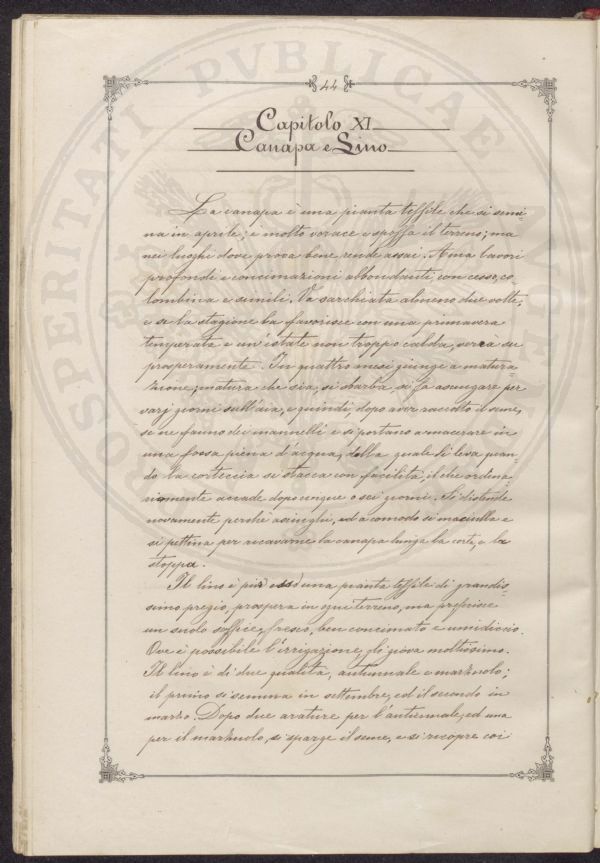 44
Capitolo XI
Canapa e Lino
La canapa è una pianta tessile che si semi-
na in aprile; è molto vorace e spossa il terreno; ma
nei luoghi dove prova bene, rende assai. Ama lavori
profondi e concimazioni abbondanti con cesso, co-
lombina e simili. Va sarchiata almeno due volte,
e se la stagione la favorisce con una primavera
temperata e un'estate non troppo calda, verrà su
prosperamente. In quattro mesi giunge a matura-
zione; matura che sia, si sbarba si fa asciugare per
varj giorni sull'aia, e quindi, dopo aver raccolto il seme,
se ne fanno dei mannelli e si portano a macerare in
una fossa piena d'acqua, dalla quale si leva quan-
do la corteccia si stacca con facilità, il che ordina-
riamente accade dopo cinque o sei giorni. Si distende
novamente perchè asciughi, ed a comodo si maciulla e
si pettina per ricavarne la canapa lunga la corta, e la
stoppa.
Il lino è pur esso una pianta tessile di grandis-
simo pregio, prospera in ogni terreno, ma preferisce
un suolo soffice, fresco, ben concimato e umidiccio.
Ove è possibile l'irrigazione, gli giova moltissimo.
Il lino è di due qualità, autunnale e marzuolo;
il primo si semina in settembre, ed il secondo in
marzo. Dopo due arature per l'autunnale, ed una
per il marzuolo, si sparge il seme, e si ricopre coi
PROSPERITATI PVBLICAE AVGENDAE